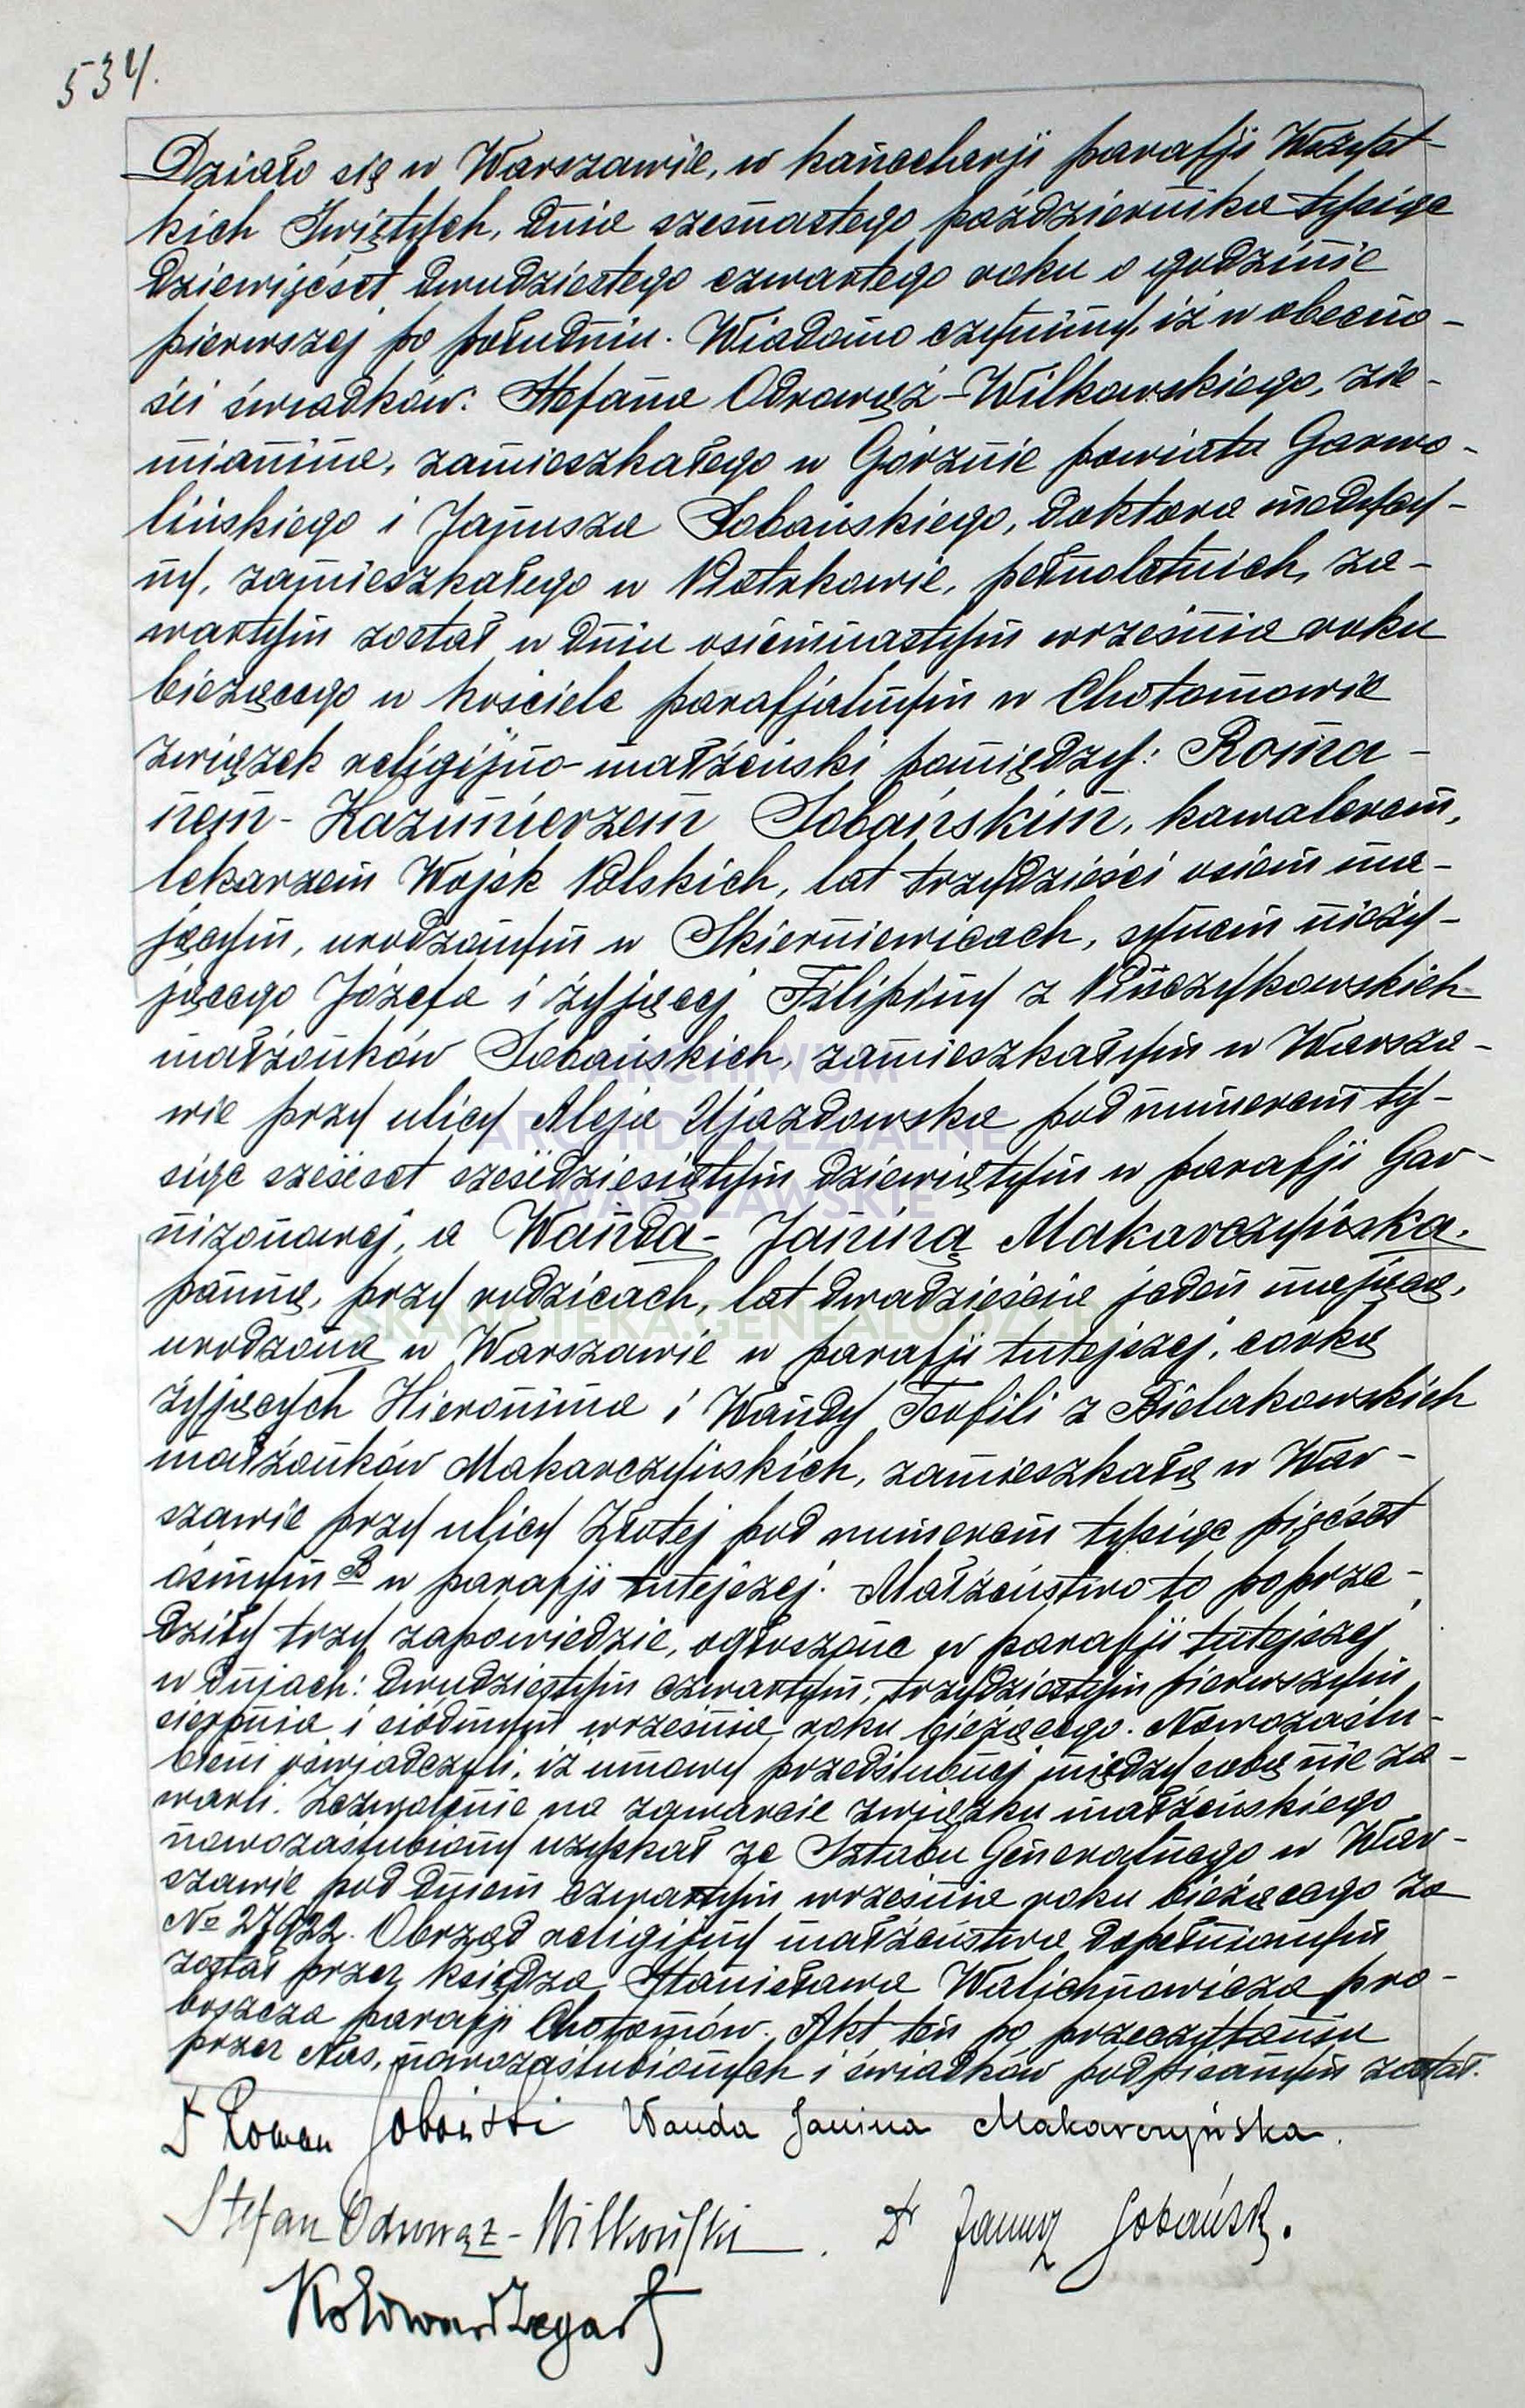 534.
Działo się w Warszawie, w kancelarji parafji Wszyst-
kich Świętych, dnia szesnastego października tysiąc
dziewięćset dwudziestego czwartego roku o godzinie
pierwszej po południu. Wiadomo czynimy, iż w obecno-
ści świadków: Stefana Odrowąż-Wilkowskiego, zie-
mianina, zamieszkałego w Górznie powiatu Garwo-
lińskiego i Janusza Sobańskiego, doktora medycy-
ny, zamieszkałego w Piotrkowie, pełnoletnich, za-
wartym został w dniu osiemnastym września roku
bieżącego w kościele parafjalnym w Chotomowie
związek religijno-małżeński pomiędzy: Roma-
nem-Kazimierzem Sobańskim, kawalerem,
lekarzem Wojsk Polskich, lat trzydzieści osiem ma-
jącym, urodzonym w Skierniewicach, synem nieży-
jącego Józefa i żyjącej Filipiny z
małżonków Sobańskich, zamieszkałym w Warsza-
wie przy ulicy Aleja Ujazdowska pod numerem ty-
siąc sześćset sześćdziesiątym dziewiątym w parafji Gar-
nizonowej, a Wandą-Janiną Makarczyńską,
panną, przy rodzicach, lat dwadzieścia jeden mającą,
urodzoną w Warszawie w parafji tutejszej, córką
żyjących Hieronima i Wandy Teofili z Bielakowskich
małżonków Makarczyńskich, zamieszkałą w War-
szawie przy ulicy Złotej pod numerem tysiąc pięćset
ósmym B w parafji tutejszej. Małżeństwo to poprze-
dziły trzy zapowiedzie, ogłoszone w parafji tutejszej
w dniach: dwudziestym czwartym, trzydziestym pierwszym
sierpnia i siódmym września roku bieżącego. Nowozaślu-
bieni oświadczyli, iż umowy przedślubnej między sobą nie za-
warli. Zezwolenie na zawarcie związku małżeńskiego
nowozaślubiony uzyskał ze Sztabu Generalnego w War-
szawie pod dniem czwartym września roku bieżącego za
№ 27922. Obrzęd religijny małżeństwa dopełnionym
został przez księdza Stanisława Walichnowicza pro-
boszcza parafji Chotomów. Akt ten po przeczytaniu
przez Nas, nowozaślubionych i świadków podpisanym został.
Dr Roman Sobański Wanda Janina Makarczyńska.
Stefan Odrowąż-Wilkowski. Dr Janusz Sobański.
ARCHIWUM
ARCHIDIECEZJALNE
WARSZAWSKIE
SKANOTEKA.GENEALODZY.PL